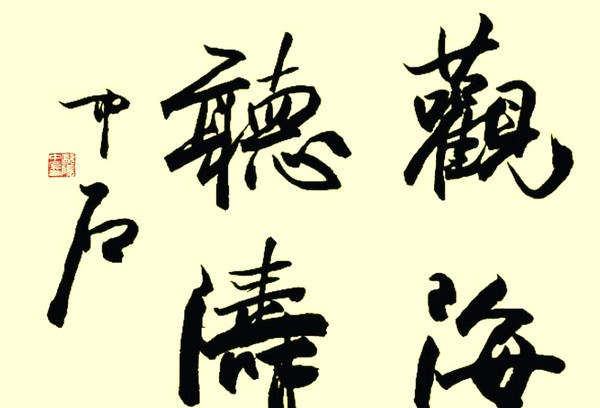 觀海
聽濤
中石